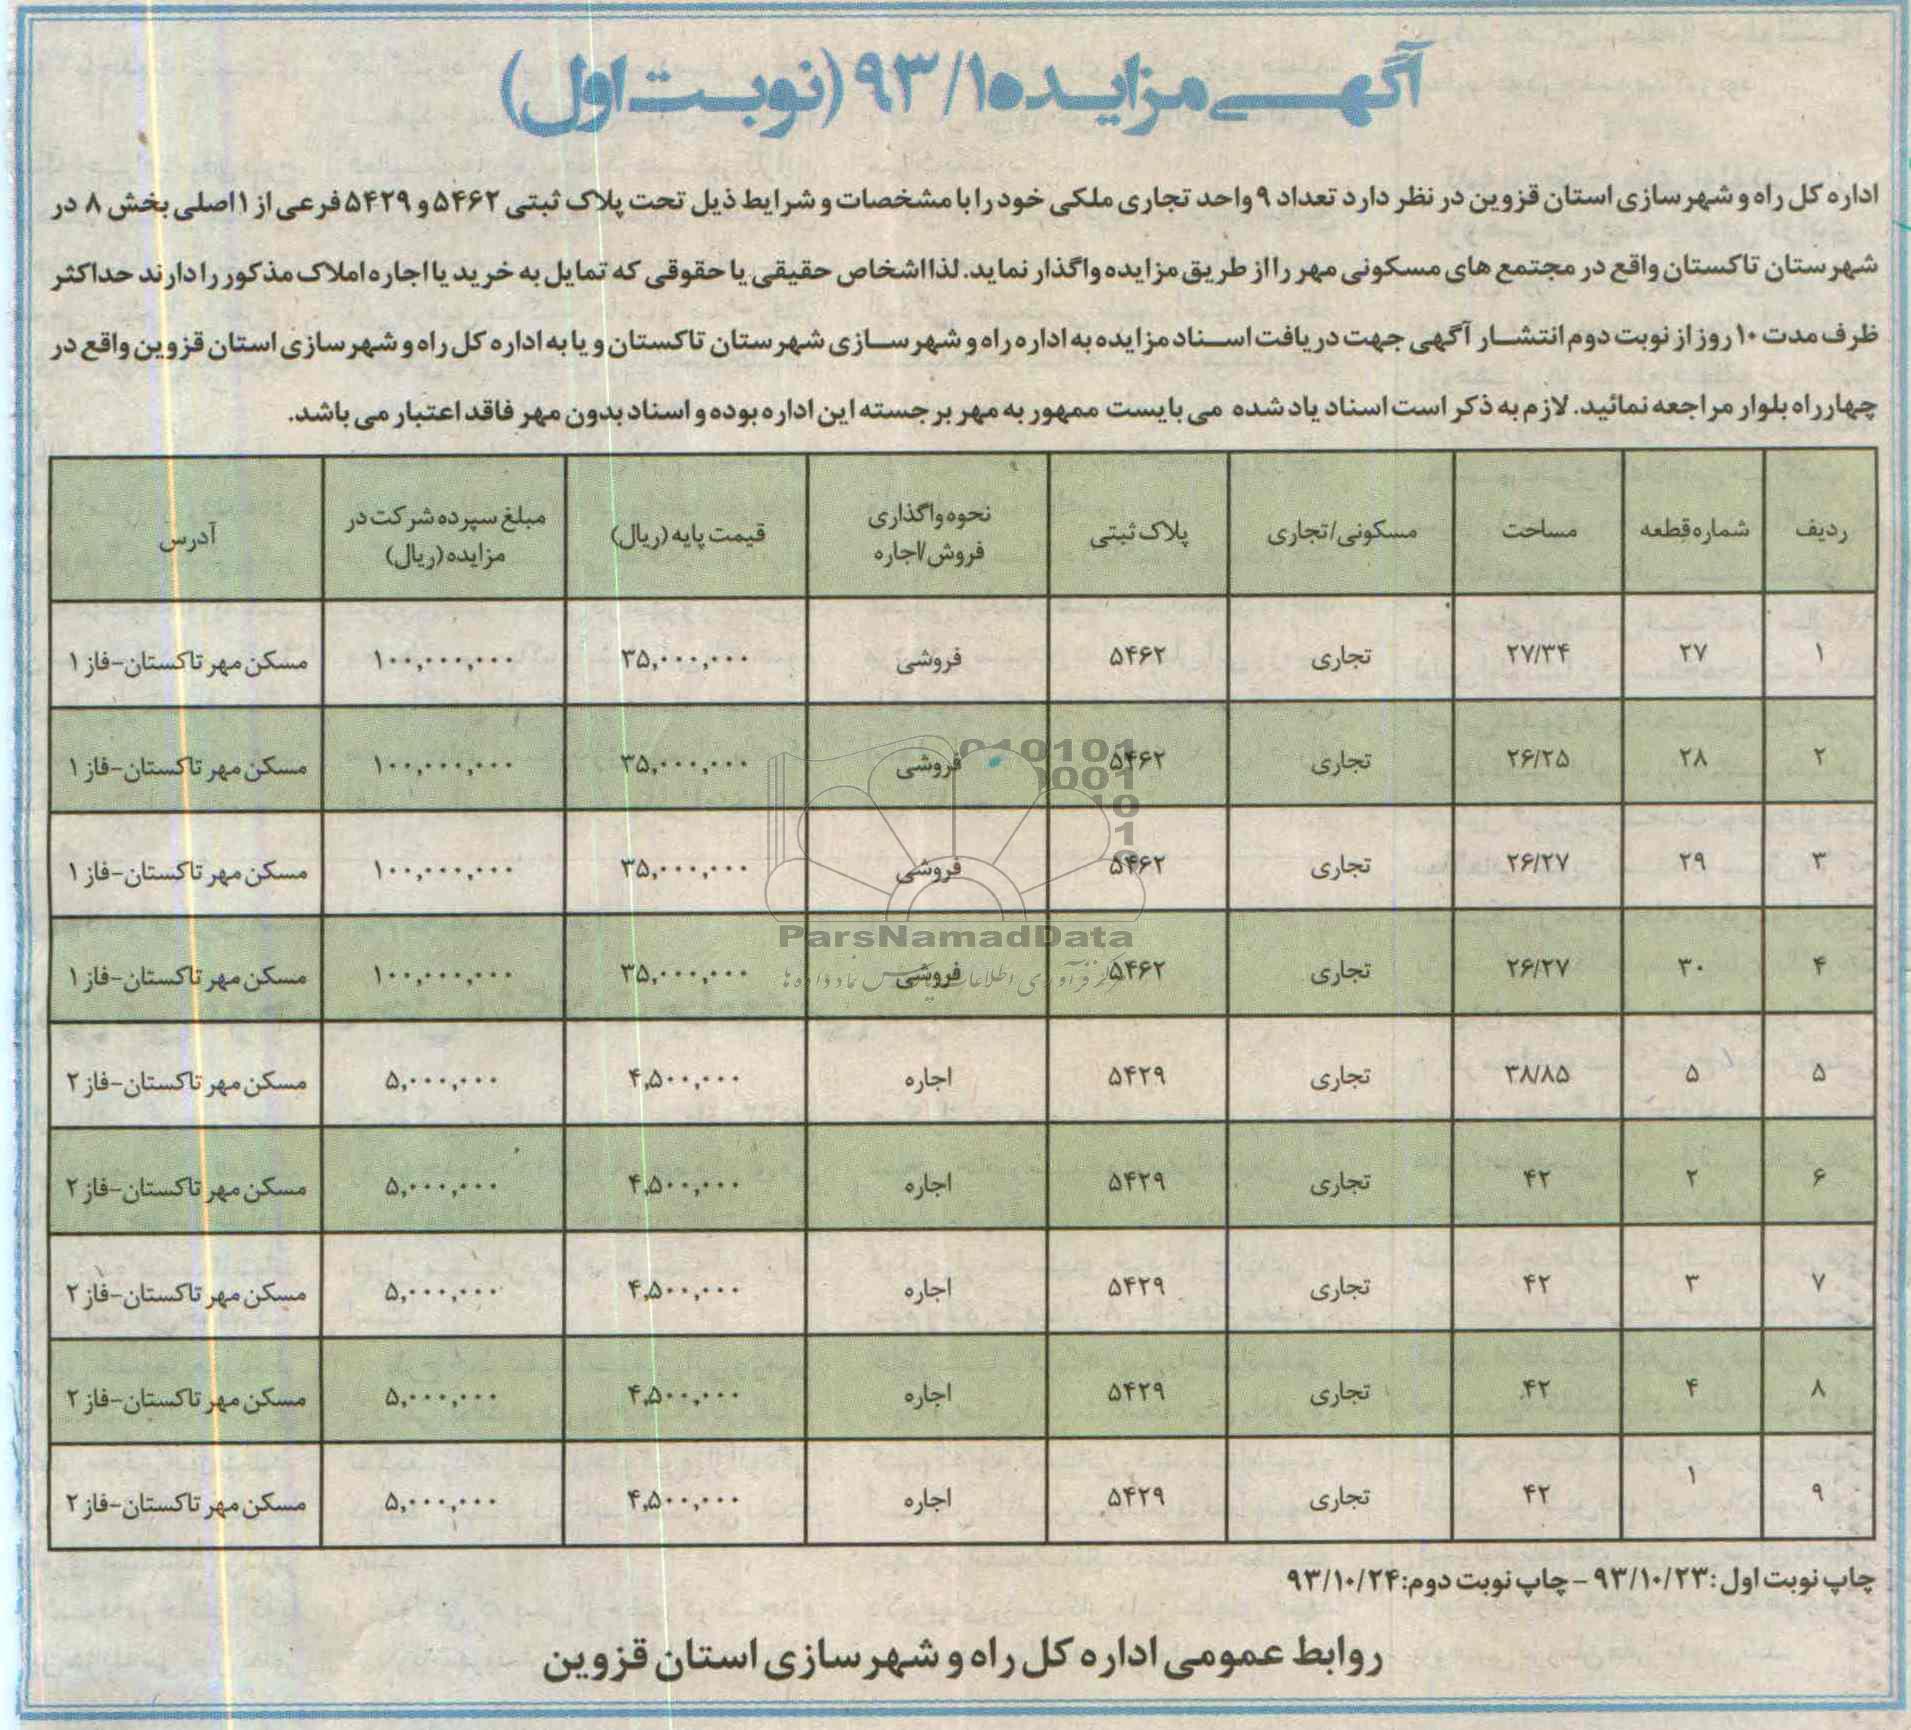 آگهی مزایده ۹۳/۱ (نوبت اول)
اداره کل راه و شهرسازی استان قزوین در نظر دارد تعداد ۹ واحد تجاری ملکی خود را با مشخصات و شرایط ذیل تحت پلاک ثبتی ۵۴۶۲ و ۵۴۲۹ فرعی از ۱ اصلی بخش ۸ در
شهرستان تاکستان واقع در مجتمع های مسکونی مهر را از طریق مزایده واگذار نماید. لذا اشخاص حقیقی یا حقوقی که تمایل به خرید یا اجاره املاک مذکور را دارند حداکثر
ظرف مدت ۱۰ روز از نوبت دوم انتشار آگهی جهت دریافت اسناد مزایده به اداره راه و شهرسازی شهرستان تاکستان و یا به اداره کل راه و شهرسازی استان قزوین واقع در
چهارراه بلوار مراجعه نمائید. لازم به ذکر است اسناد یاد شده می بایست ممهور به مهر برجسته این اداره بوده و اسناد بدون مهر فاقد اعتبار می باشد.
ردیف شماره قطعه مساحت مسکونی/تجاری پلاک ثبتی نحوه واگذاری فروش/اجاره قیمت پایه (ریال) مبلغ سپرده شرکت در مزایده (ریال) آدرس
۱ ۲۷ ۲۷/۳۴ تجاری ۵۴۶۲ فروشی ۳۵,۰۰۰,۰۰۰ ۱۰۰,۰۰۰,۰۰۰ مسکن مهر تاکستان-فاز ۱
۲ ۲۸ ۲۶/۲۵ تجاری ۵۴۶۲ فروشی ۳۵,۰۰۰,۰۰۰ ۱۰۰,۰۰۰,۰۰۰ مسکن مهر تاکستان-فاز ۱
۳ ۲۹ ۲۶/۲۷ تجاری ۵۴۶۲ فروشی ۳۵,۰۰۰,۰۰۰ ۱۰۰,۰۰۰,۰۰۰ مسکن مهر تاکستان-فاز ۱
ParsNamadData
۴ ۳۰ ۲۶/۲۷ تجاری ۵۴۶۲ فروشی ۳۵,۰۰۰,۰۰۰ ۱۰۰,۰۰۰,۰۰۰ مسکن مهر تاکستان-فاز ۱
۵ ۵ ۳۸/۸۵ تجاری ۵۴۲۹ اجاره ۴,۵۰۰,۰۰۰ ۵,۰۰۰,۰۰۰ مسکن مهر تاکستان-فاز ۲
۶ ۲ ۴۲ تجاری ۵۴۲۹ اجاره ۴,۵۰۰,۰۰۰ ۵,۰۰۰,۰۰۰ مسکن مهر تاکستان-فاز ۲
۷ ۳ ۴۲ تجاری ۵۴۲۹ اجاره ۴,۵۰۰,۰۰۰ ۵,۰۰۰,۰۰۰ مسکن مهر تاکستان-فاز ۲
۸ ۴ ۴۲ تجاری ۵۴۲۹ اجاره ۴,۵۰۰,۰۰۰ ۵,۰۰۰,۰۰۰ مسکن مهر تاکستان-فاز ۲
۹ ۱ ۴۲ تجاری ۵۴۲۹ اجاره ۴,۵۰۰,۰۰۰ ۵,۰۰۰,۰۰۰ مسکن مهر تاکستان-فاز ۲
چاپ نوبت اول: ۹۳/۱۰/۲۳ - چاپ نوبت دوم: ۹۳/۱۰/۲۴
روابط عمومی اداره کل راه و شهرسازی استان قزوین